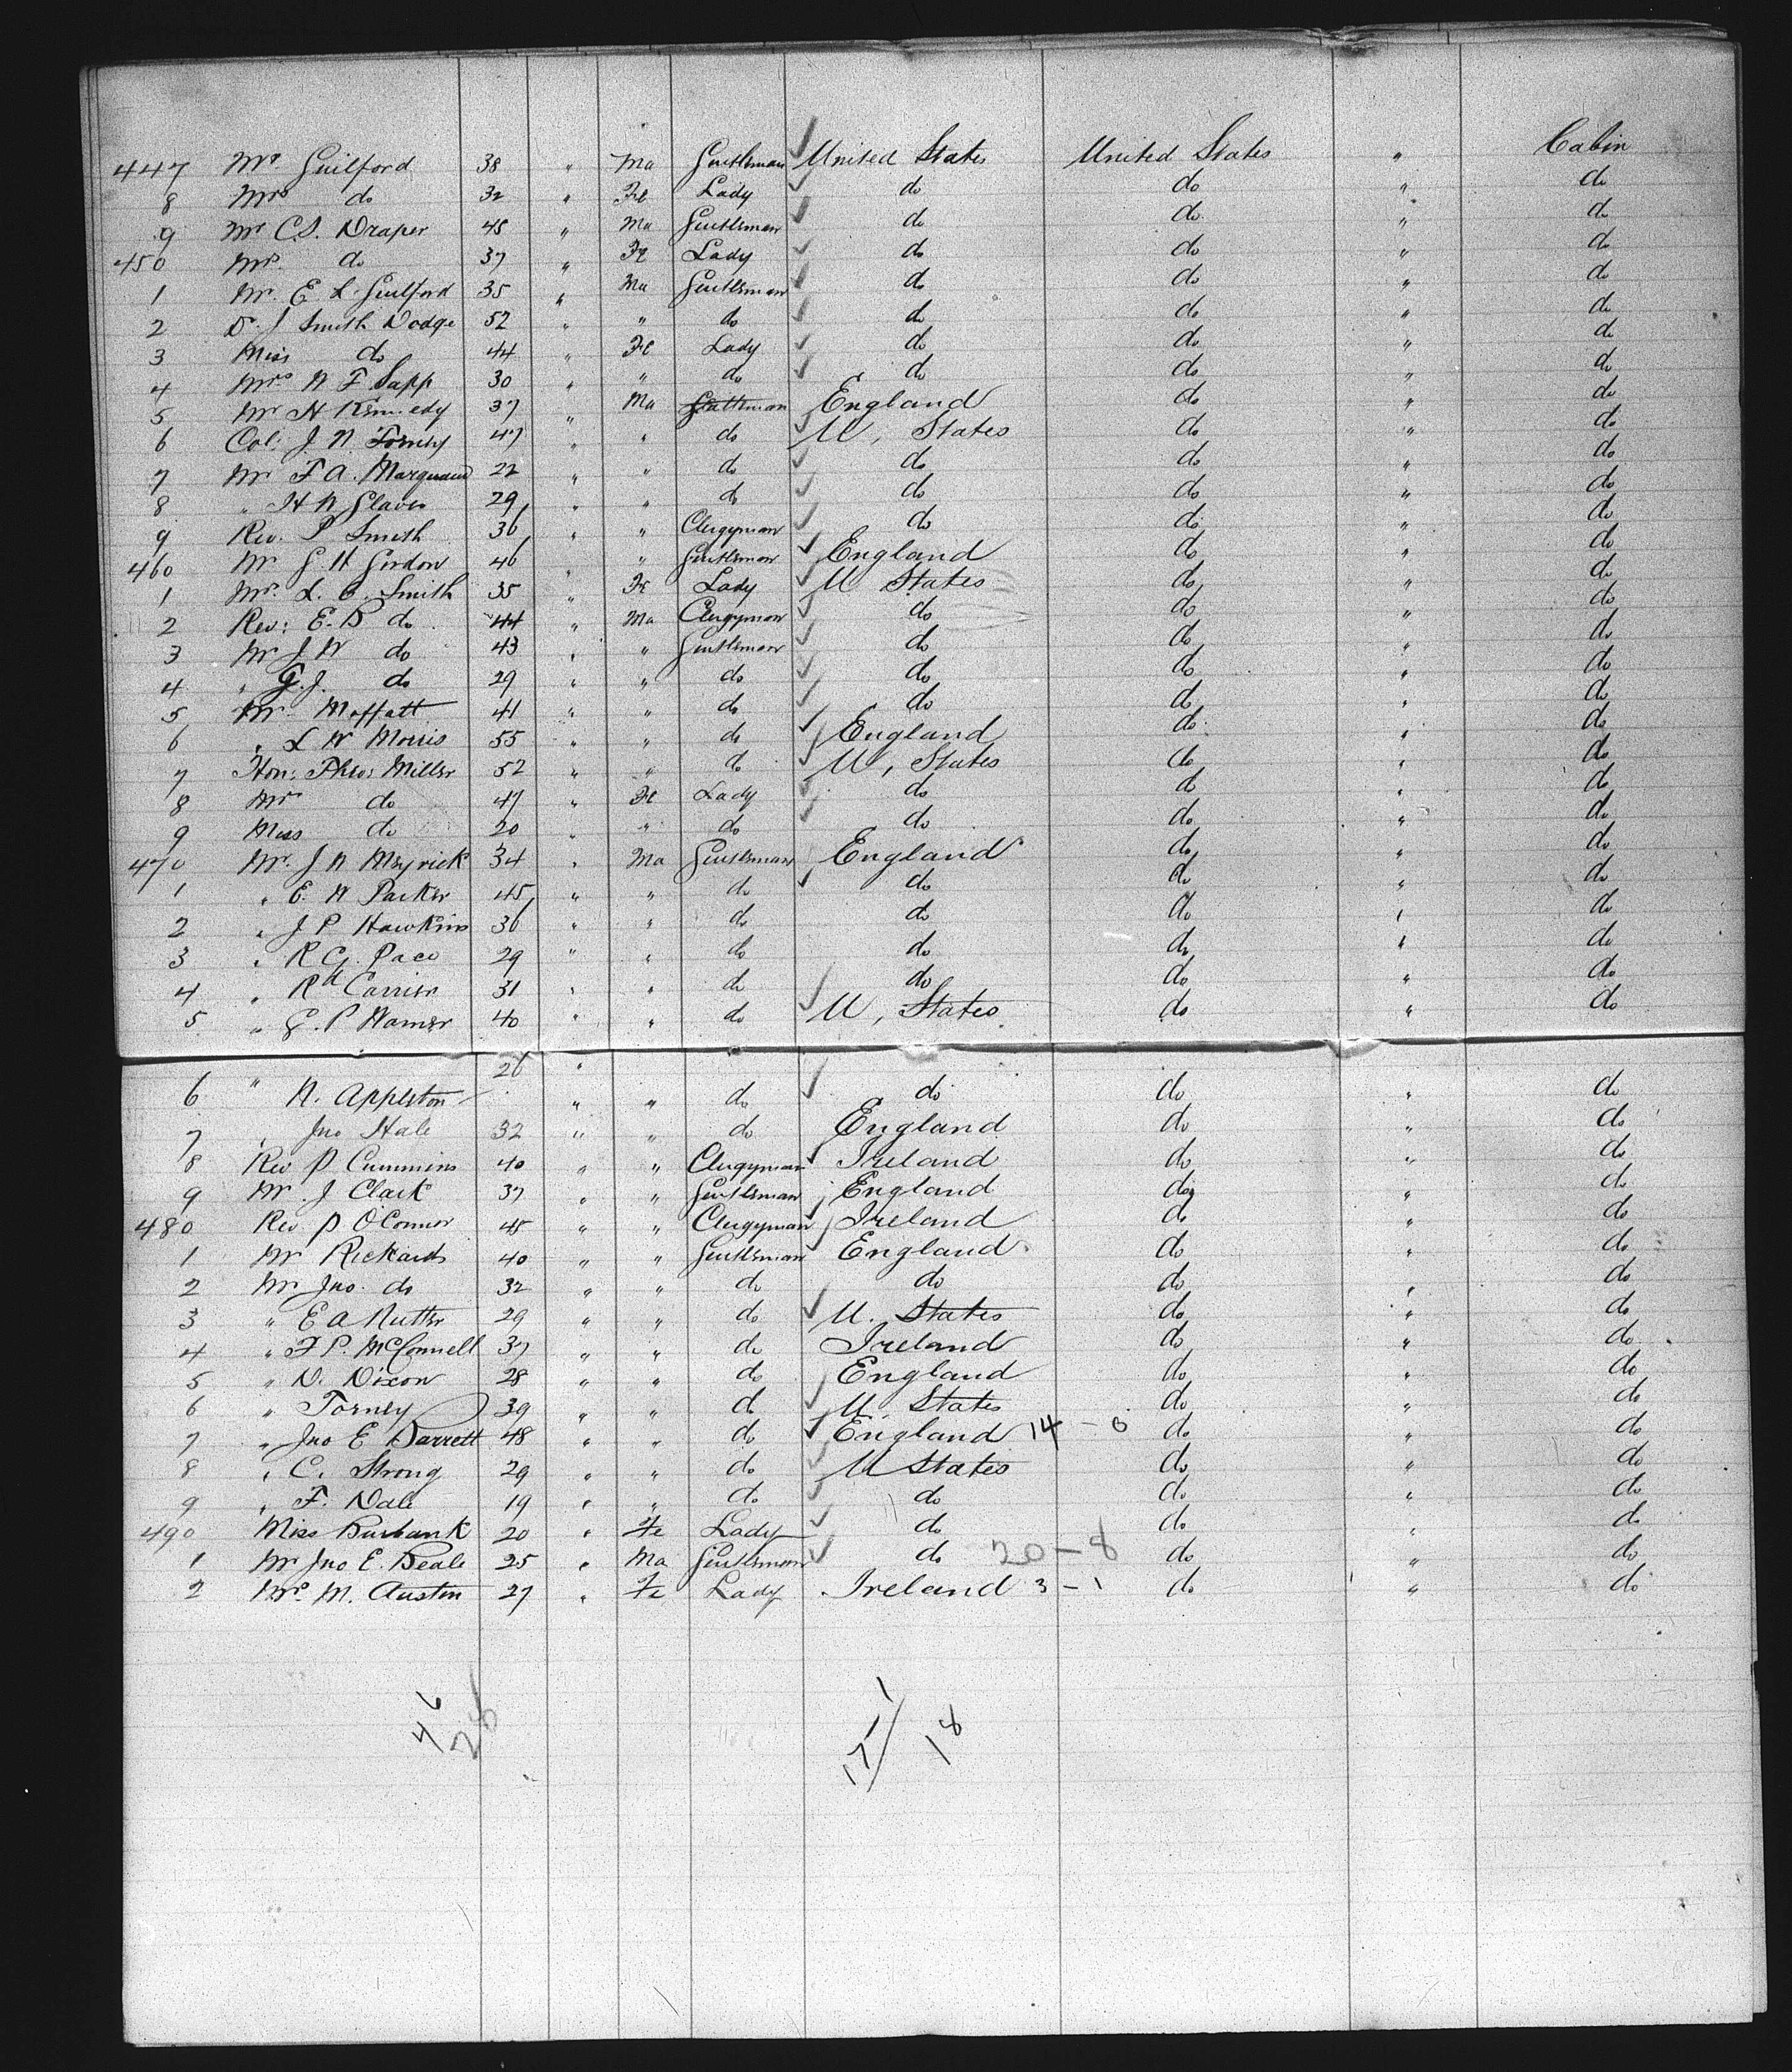 447 Mr Guilford 38 " Ma Gentleman United States United States " Cabin
8 Mrs do 32 " Fe Lady do do " do
9 Mr C.S. Draper 45 " Ma Gentleman do do " do
450 Mrs. do 37 " Fe Lady do do " do
1 Mr. E L Guilford 35 " Ma Gentleman do do " do
2 D. J Smith Dodge 52 " " do do do " do
3 Miss do 44 " Fe Lady do do " do
4 Mrs W F Sapp 30 " " do do do " do
5 Mr H Kennedy 37 " Ma Gentleman England do " do
6 Col: J. W. Forney 47 " " do U, States do " do
7 Mr F A. Marquand 22 " " do do do " do
8 " H W Slaves 29 " " do do do " do
9 Rev. P Smith 36 " " Clergyman do do " do
460 Mr G H Gordon 46 " " Gentleman England do " do
1 Mrs. L. C. Smith 35 " Fe Lady U States do " do
2 Rev: E. B do 44 " Ma Clergyman do do " do
3 Mr J W do 43 " " Gentleman do do " do
4 " G. J. do 29 " " do do do " do
5 Mr Moffatt 41 " " do do do " do
6 " L W Morris 55 " " do England do " do
7 Hon: Theo: Miller 52 " " do U, States do " do
8 Mrs do 47 " Fe Lady do do " do
9 Miss do 20 " " do do do " do
470 Mr. J W Meyrick 34 " Ma Gentleman England do " do
1 " E. W Parker 45 " " do do do " do
2 " J P Hawkins 36 " " do do do " do
3 " R G. Pace 29 " " do do do " do
4 " Rd Carrier 31 " " do do do " do
5 " E. P Warner 40 " " do U, States do " do
6 " N. Appleton 26 " " do do do " do
7 " Jno Hale 32 " " do England do " do
8 Rev P Cummins 40 " " Clergyman Ireland do " do
9 Mr. J Clark 37 " " Gentleman England do " do
480 Rev P O'Connor 45 " " Clergyman Ireland do " do
1 Mr Rickards 40 " " Gentleman England do " do
2 Mr Jno. do 32 " " do do do " do
3 " E A Nutter 29 " " do U. States do " do
4 " F P. McConnell 37 " " do Ireland do " do
5 " D. Dixon 28 " " do England do " do
6 " Torney 39 " " do U. States do " do
7 " Jno E Barrett 48 " " do England 14 - 0 do " do
8 " C. Strong 29 " " do U States do " do
9 " F. Dale 19 " " do do do " do
490 Miss Burbank 20 " Fe Lady do do " do
1 Mr Jno E. Beale 25 " Ma Gentleman do 20 - 8 do " do
2 Mrs M. Austin 27 " Fe Lady Ireland 3 - 1 do " do
46
28
17/1
18